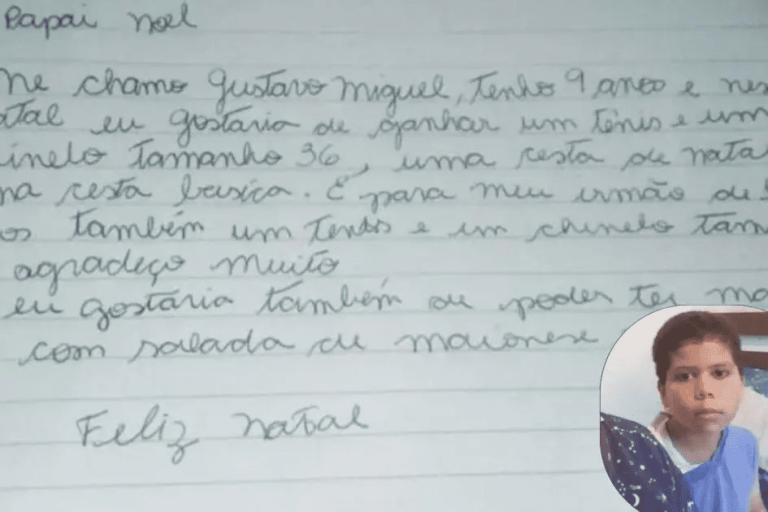 Papai noel
me chamo Gustavo miguel, tenho 9 anos e nes
atal eu gostaria de ganhar um tênis e um
inelo Tamanho 36, uma cesta de nata
ma cesta basica. E para meu irmão de
os também um Tenis e um chinelo Tam
agradeço muito
eu gostaria também de poder ter ma
com salada de maionese
Feliz natal